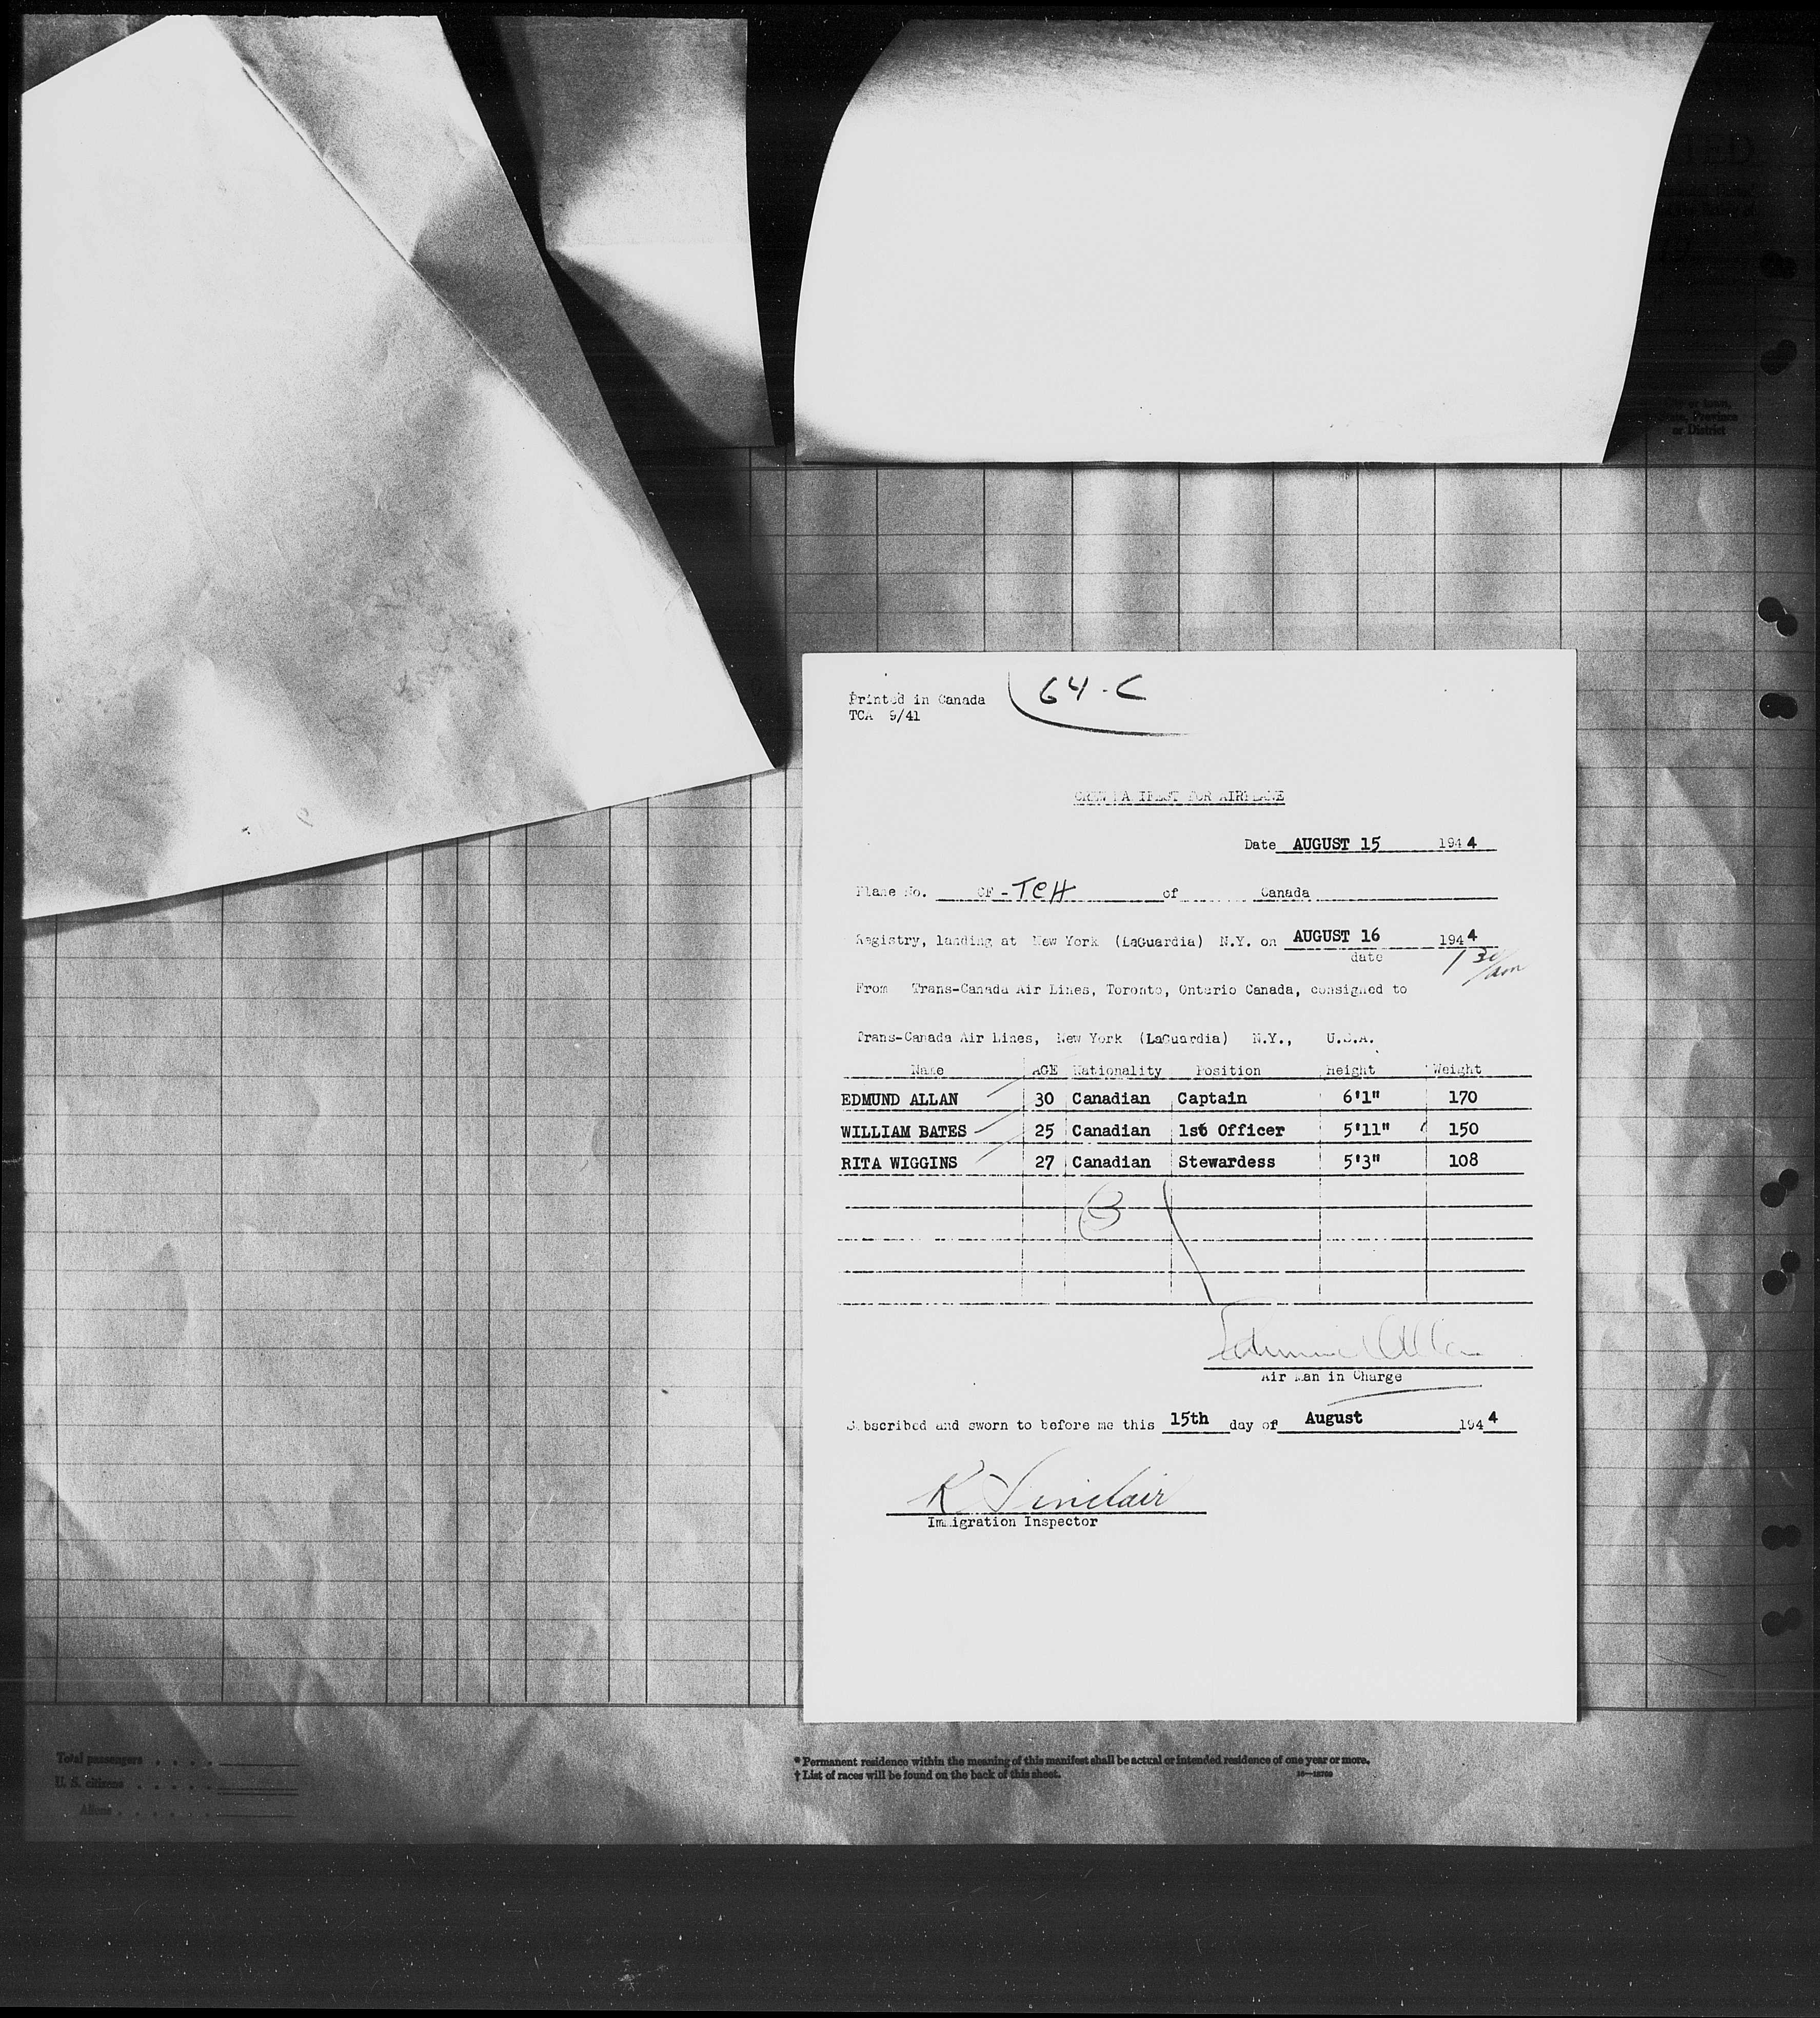 64-C
Printed in Canada
TCA 9/41
CREW MANIFEST FOR AIRPLANE
Date AUGUST 15 1944
Plane No. CF-TCH of Canada
Registry, landing at New York (LaGuardia) N.Y. on AUGUST 16 1944
date
1 30/am
From Trans-Canada Air Lines, Toronto, Ontario Canada, consigned to
Trans-Canada Air Lines, New York (LaGuardia) N.Y., U.S.A.
Name AGE Nationality Position Height Weight
EDMUND ALLAN 30 Canadian Captain 6'1" 170
WILLIAM BATES 25 Canadian 1st Officer 5'11" 150
RITA WIGGINS 27 Canadian Stewardess 5'3" 108
3
Edmund Allan
Air Man in Charge
Subscribed and sworn to before me this 15th day of August 1944
K Sinclair
Immigration Inspector
City or town,
State, Province
or District
Total passengers . . . .
U. S. citizens . . . . .
Aliens . . . . . .
* Permanent residence within the meaning of this manifest shall be actual or intended residence of one year or more.
† List of races will be found on the back of this sheet.